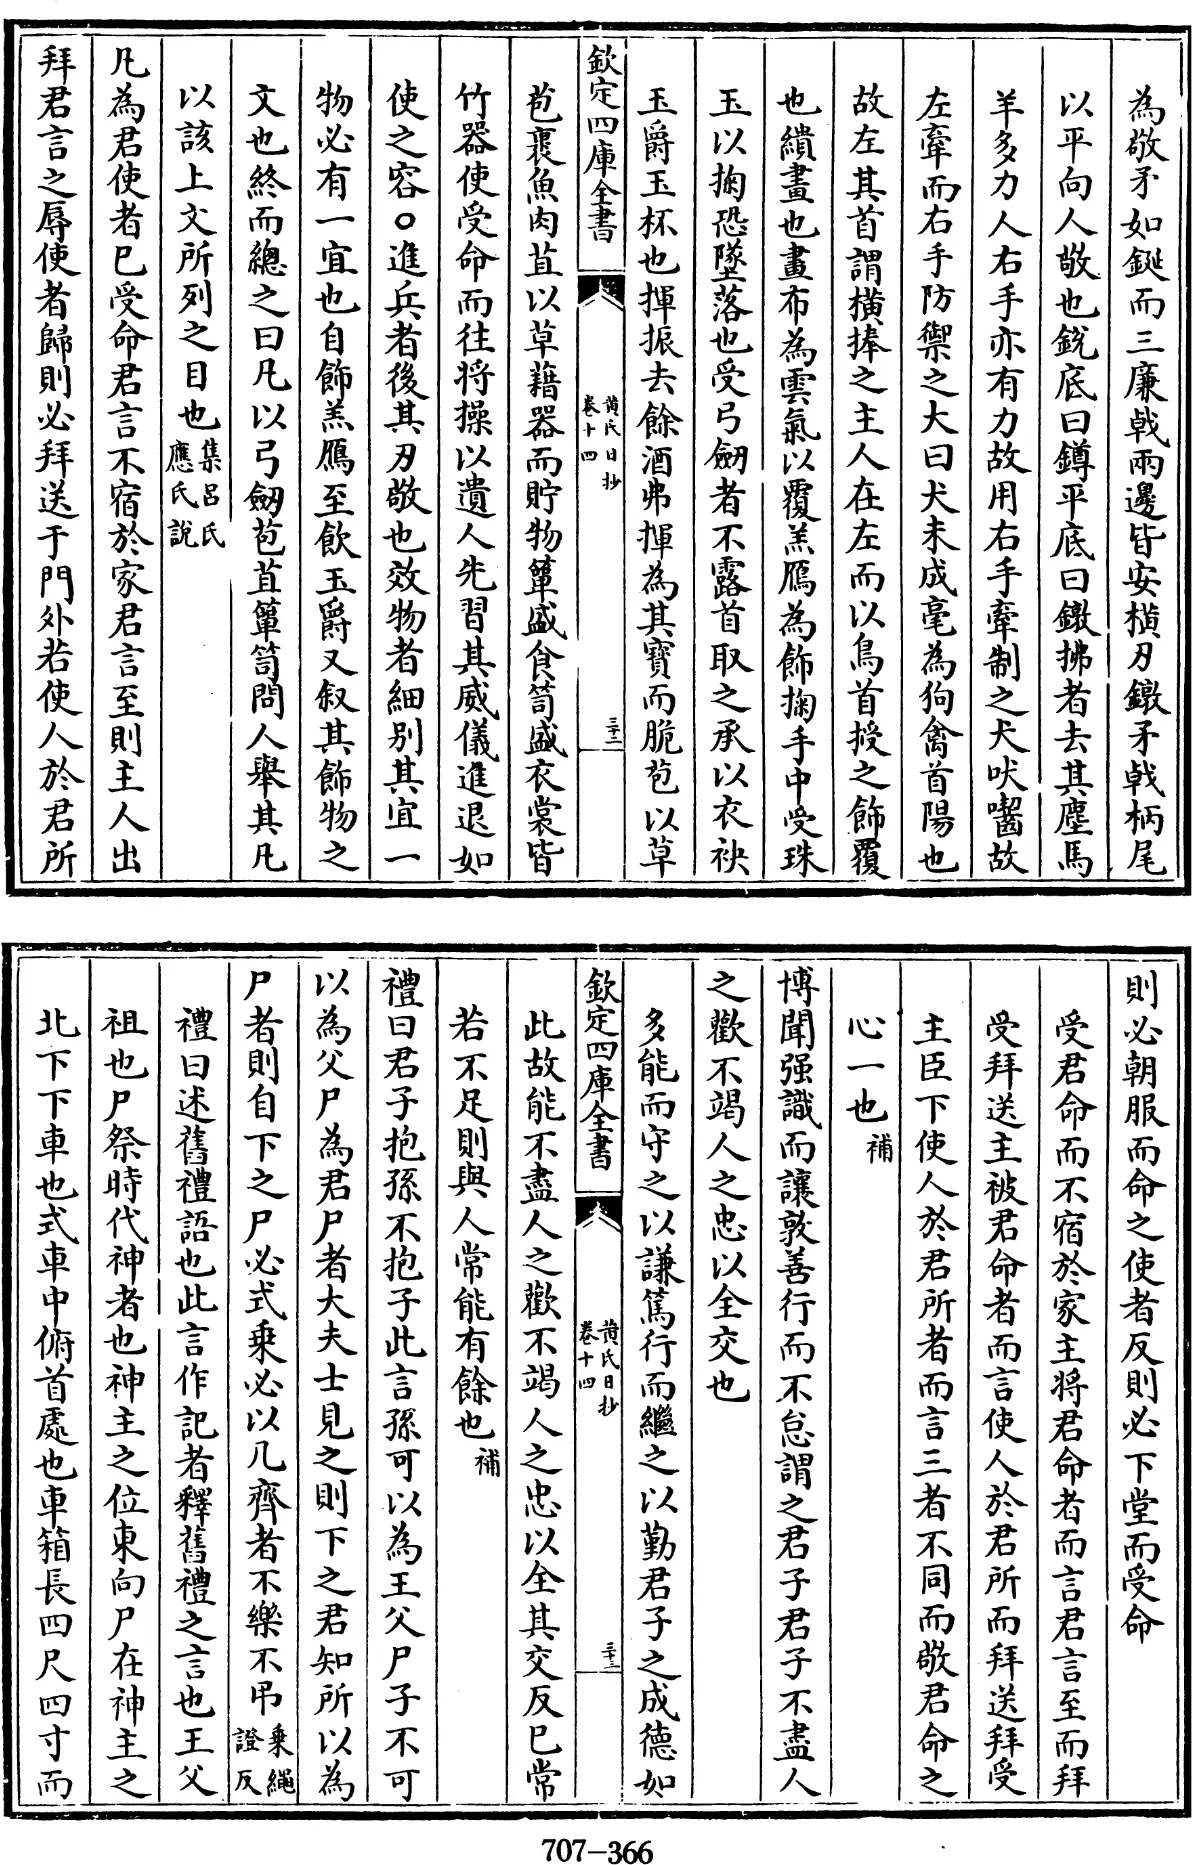 為敬矛如鋋而三廉戟兩邊皆安橫刃鐓矛戟柄尾
以平向人敬也銳底曰鐏平底曰鐓拂者去其塵馬
羊多力人右手亦有力故用右手牽制之犬吠嚙故
左牽而右手防禦之大曰犬未成毫為狗禽首陽也
故左其首謂橫捧之主人在左而以鳥首授之飾覆
也繢畫也畫布為雲氣以覆羔鴈為飾掬手中受珠
玉以掬恐墜落也受弓劒者不露首取之承以衣袂
玉爵玉杯也揮振去餘酒弗揮為其寶而脆苞以草
欽定四庫全書
黃氏日抄
卷十四
三十二
苞裹魚肉苴以草藉器而貯物簞盛食笥盛衣裳皆
竹器使受命而往將操以遺人先習其威儀進退如
使之容○進兵者後其刃敬也效物者細别其宜一
物必有一宜也自飾羔鴈至飲玉爵又叙其飾物之
文也終而總之曰凡以弓劒苞苴簞笥問人舉其凡
以該上文所列之目也集呂氏
應氏說
凡為君使者已受命君言不宿於家君言至則主人出
拜君言之辱使者歸則必拜送于門外若使人於君所
則必朝服而命之使者反則必下堂而受命
受君命而不宿於家主將君命者而言君言至而拜
受拜送主被君命者而言使人於君所而拜送拜受
主臣下使人於君所者而言三者不同而敬君命之
心一也補
博聞强識而讓敦善行而不怠謂之君子君子不盡人
之歡不竭人之忠以全交也
多能而守之以謙篤行而繼之以勤君子之成德如
欽定四庫全書
黃氏日抄
卷十四
三十三
此故能不盡人之歡不竭人之忠以全其交反已常
若不足則與人常能有餘也補
禮曰君子抱孫不抱子此言孫可以為王父尸子不可
以為父尸為君尸者大夫士見之則下之君知所以為
尸者則自下之尸必式乘必以几齊者不樂不弔乘繩
證反
禮曰述舊禮語也此言作記者釋舊禮之言也王父
祖也尸祭時代神者也神主之位東向尸在神主之
北下下車也式車中俯首處也車箱長四尺四寸而
707-366